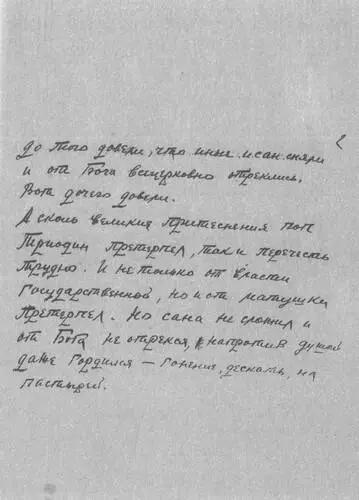 до того довели, что иные и сан сняли
и от Бога всецерковно отреклись.
Вот до чего довели.
А сколь великия притеснения поп
Териодин претерпел, так и перечесть
трудно. И не только от власти
государственной, но и от матушки
претерпел. Но сана не сложил и
от Бога не отрекся, а напротив душой
даже гордился — гонения, дескать, на
пастырей.